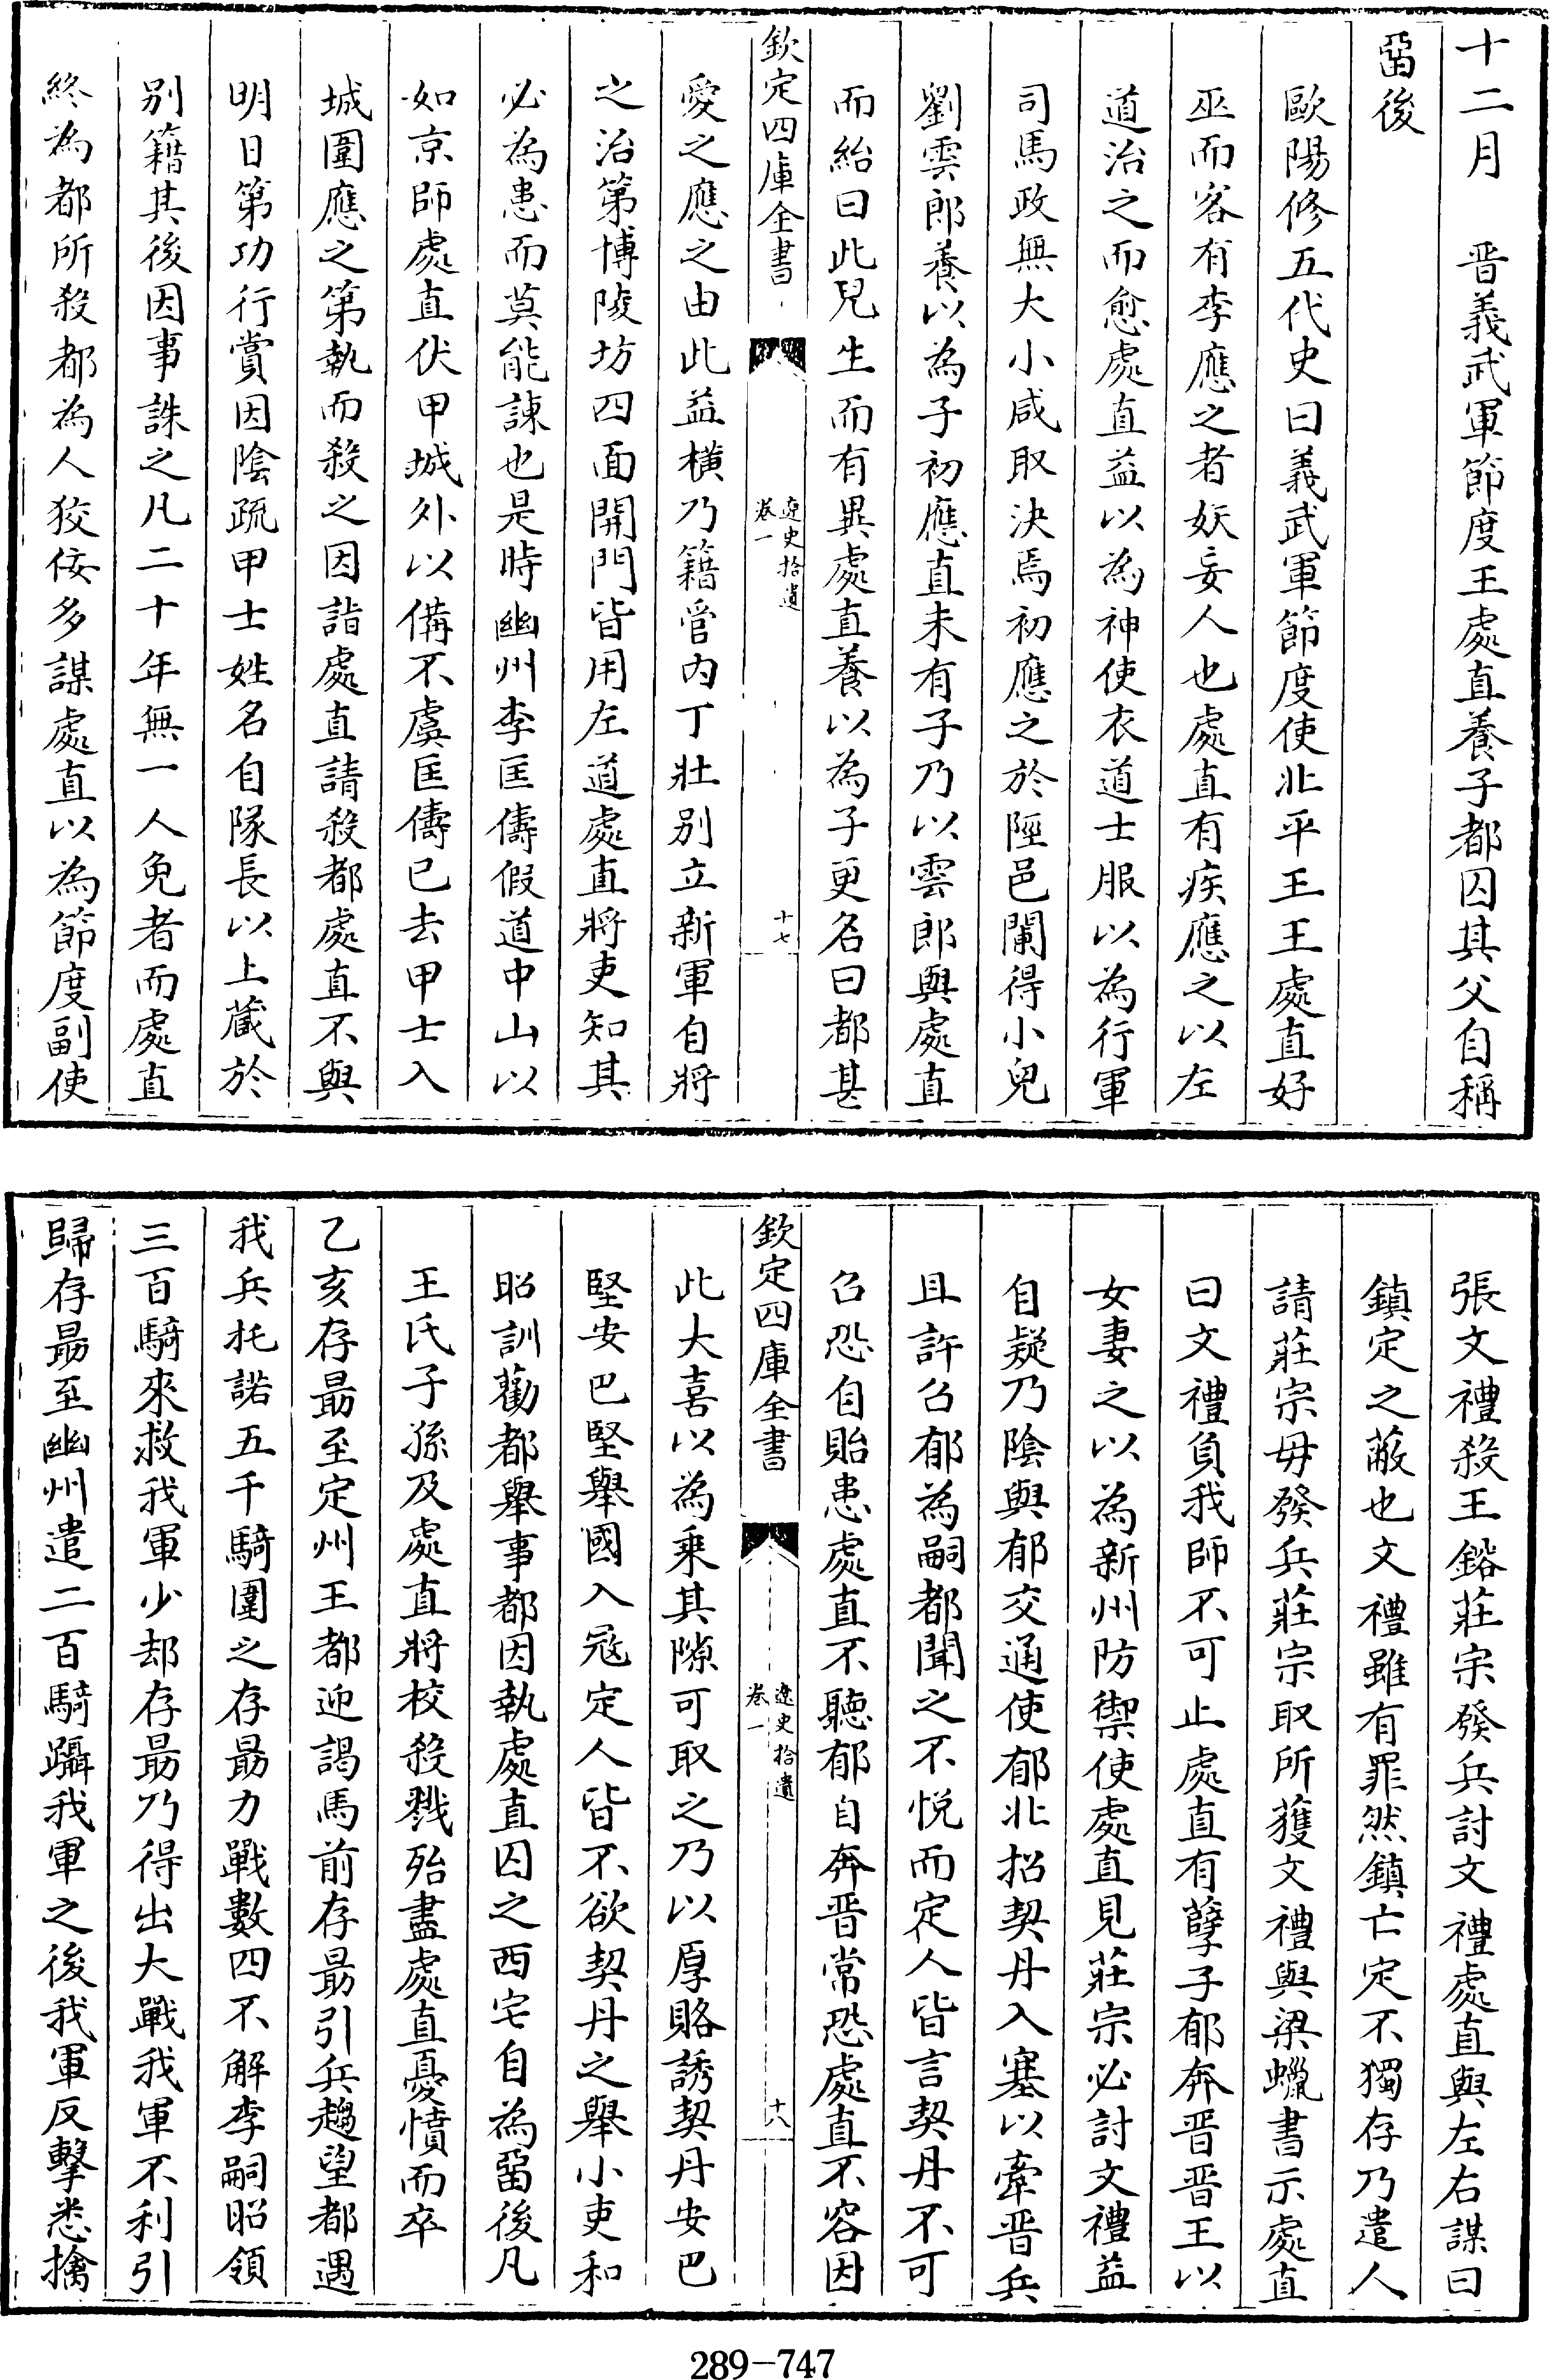 十二月　晋義武軍節度王處直養子都囚其父自稱
畱後
歐陽修五代史曰義武軍節度使北平王王處直好
巫而客有李應之者妖妄人也處直有疾應之以左
道治之而愈處直益以為神使衣道士服以為行軍
司馬政無大小咸取決焉初應之於陘邑闌得小兒
劉雲郎養以為子初應直未有子乃以雲郎與處直
而紿曰此兒生而有異處直養以為子更名曰都甚
欽定四庫全書
遼史拾遺
卷一
十七
愛之應之由此益橫乃籍管内丁壯别立新軍自將
之治第博陵坊四面開門皆用左道處直將吏知其
必為患而莫能諫也是時幽州李匡儔假道中山以
如京師處直伏甲城外以備不虞匡儔已去甲士入
城圍應之第執而殺之因詣處直請殺都處直不與
明日第功行賞因陰疏甲士姓名自隊長以上藏於
别籍其後因事誅之凡二十年無一人免者而處直
終為都所殺都為人狡佞多謀處直以為節度副使
張文禮殺王鎔莊宗發兵討文禮處直與左右謀曰
鎮定之蔽也文禮雖有罪然鎮亡定不獨存乃遣人
請莊宗毋發兵莊宗取所獲文禮與梁蠟書示處直
曰文禮負我師不可止處直有孽子郁奔晋晋王以
女妻之以為新州防禦使處直見莊宗必討文禮益
自疑乃陰與郁交通使郁北招契丹入塞以牽晋兵
且許召郁為嗣都聞之不悅而定人皆言契丹不可
召恐自貽患處直不聽郁自奔晋常恐處直不容因
欽定四庫全書
遼史拾遺
卷一
十八
此大喜以為乘其隙可取之乃以厚賂誘契丹安巴
堅安巴堅舉國入冦定人皆不欲契丹之舉小吏和
昭訓勸都舉事都因執處直囚之西宅自為畱後凡
王氏子孫及處直將校殺戮殆盡處直憂憤而卒
乙亥存朂至定州王都迎謁馬前存朂引兵趨望都遇
我兵托諾五千騎圍之存朂力戰數四不解李嗣昭領
三百騎來救我軍少却存朂乃得出大戰我軍不利引
歸存朂至幽州遣二百騎躡我軍之後我軍反擊悉擒
289-747